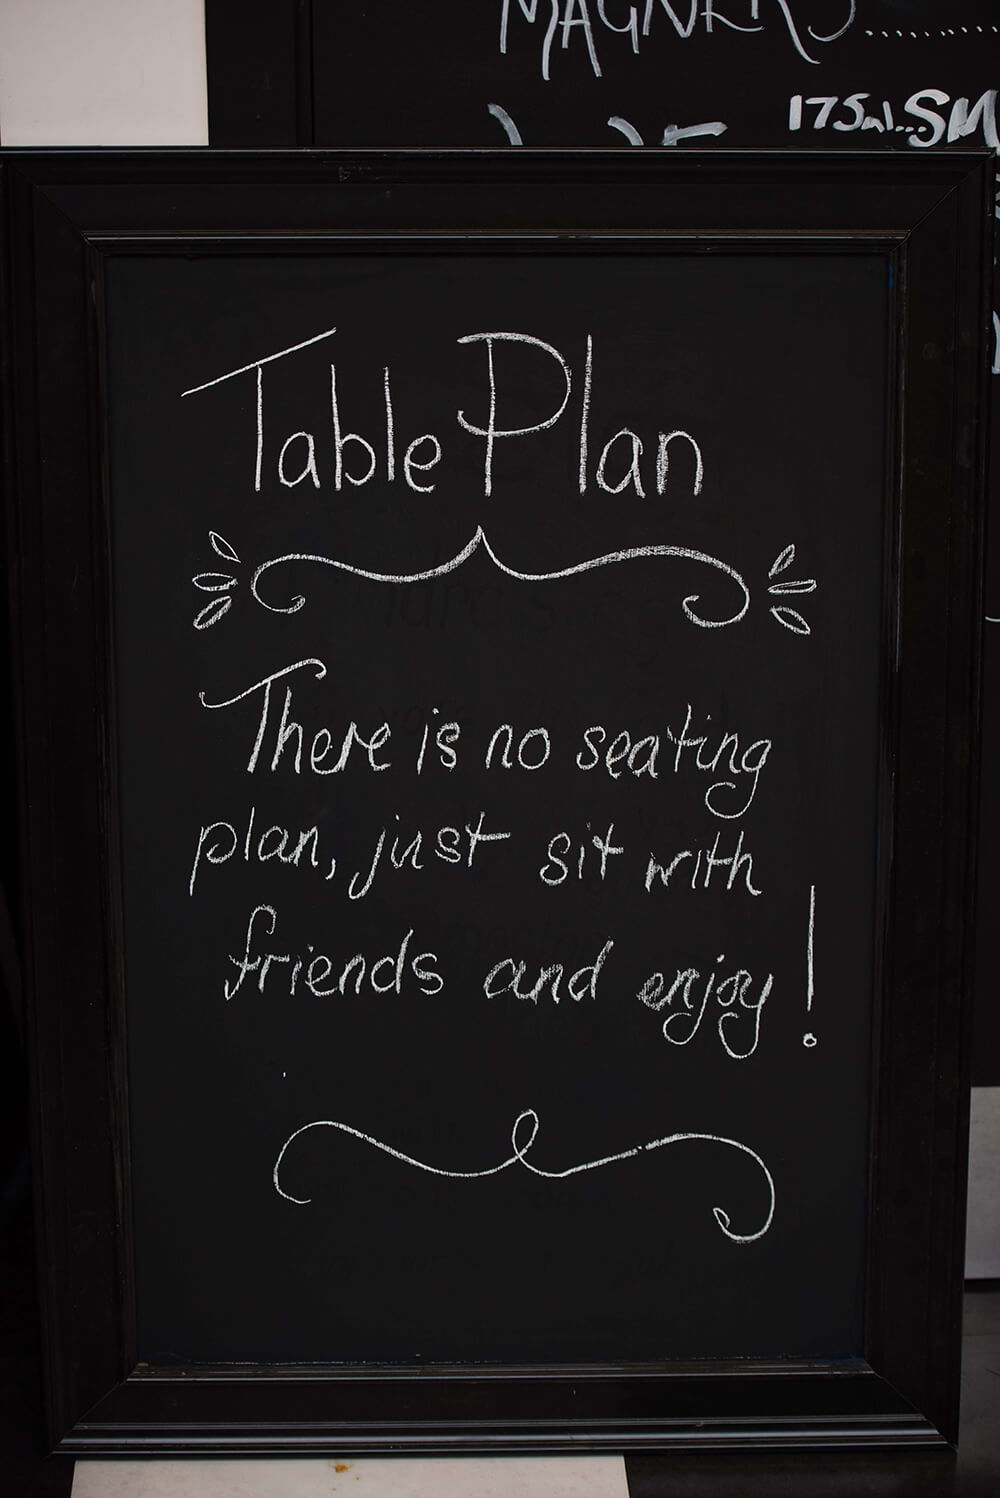 MAGNERS..........
175ml...SM
Table Plan
There is no seating
plan, just sit with
friends and enjoy!